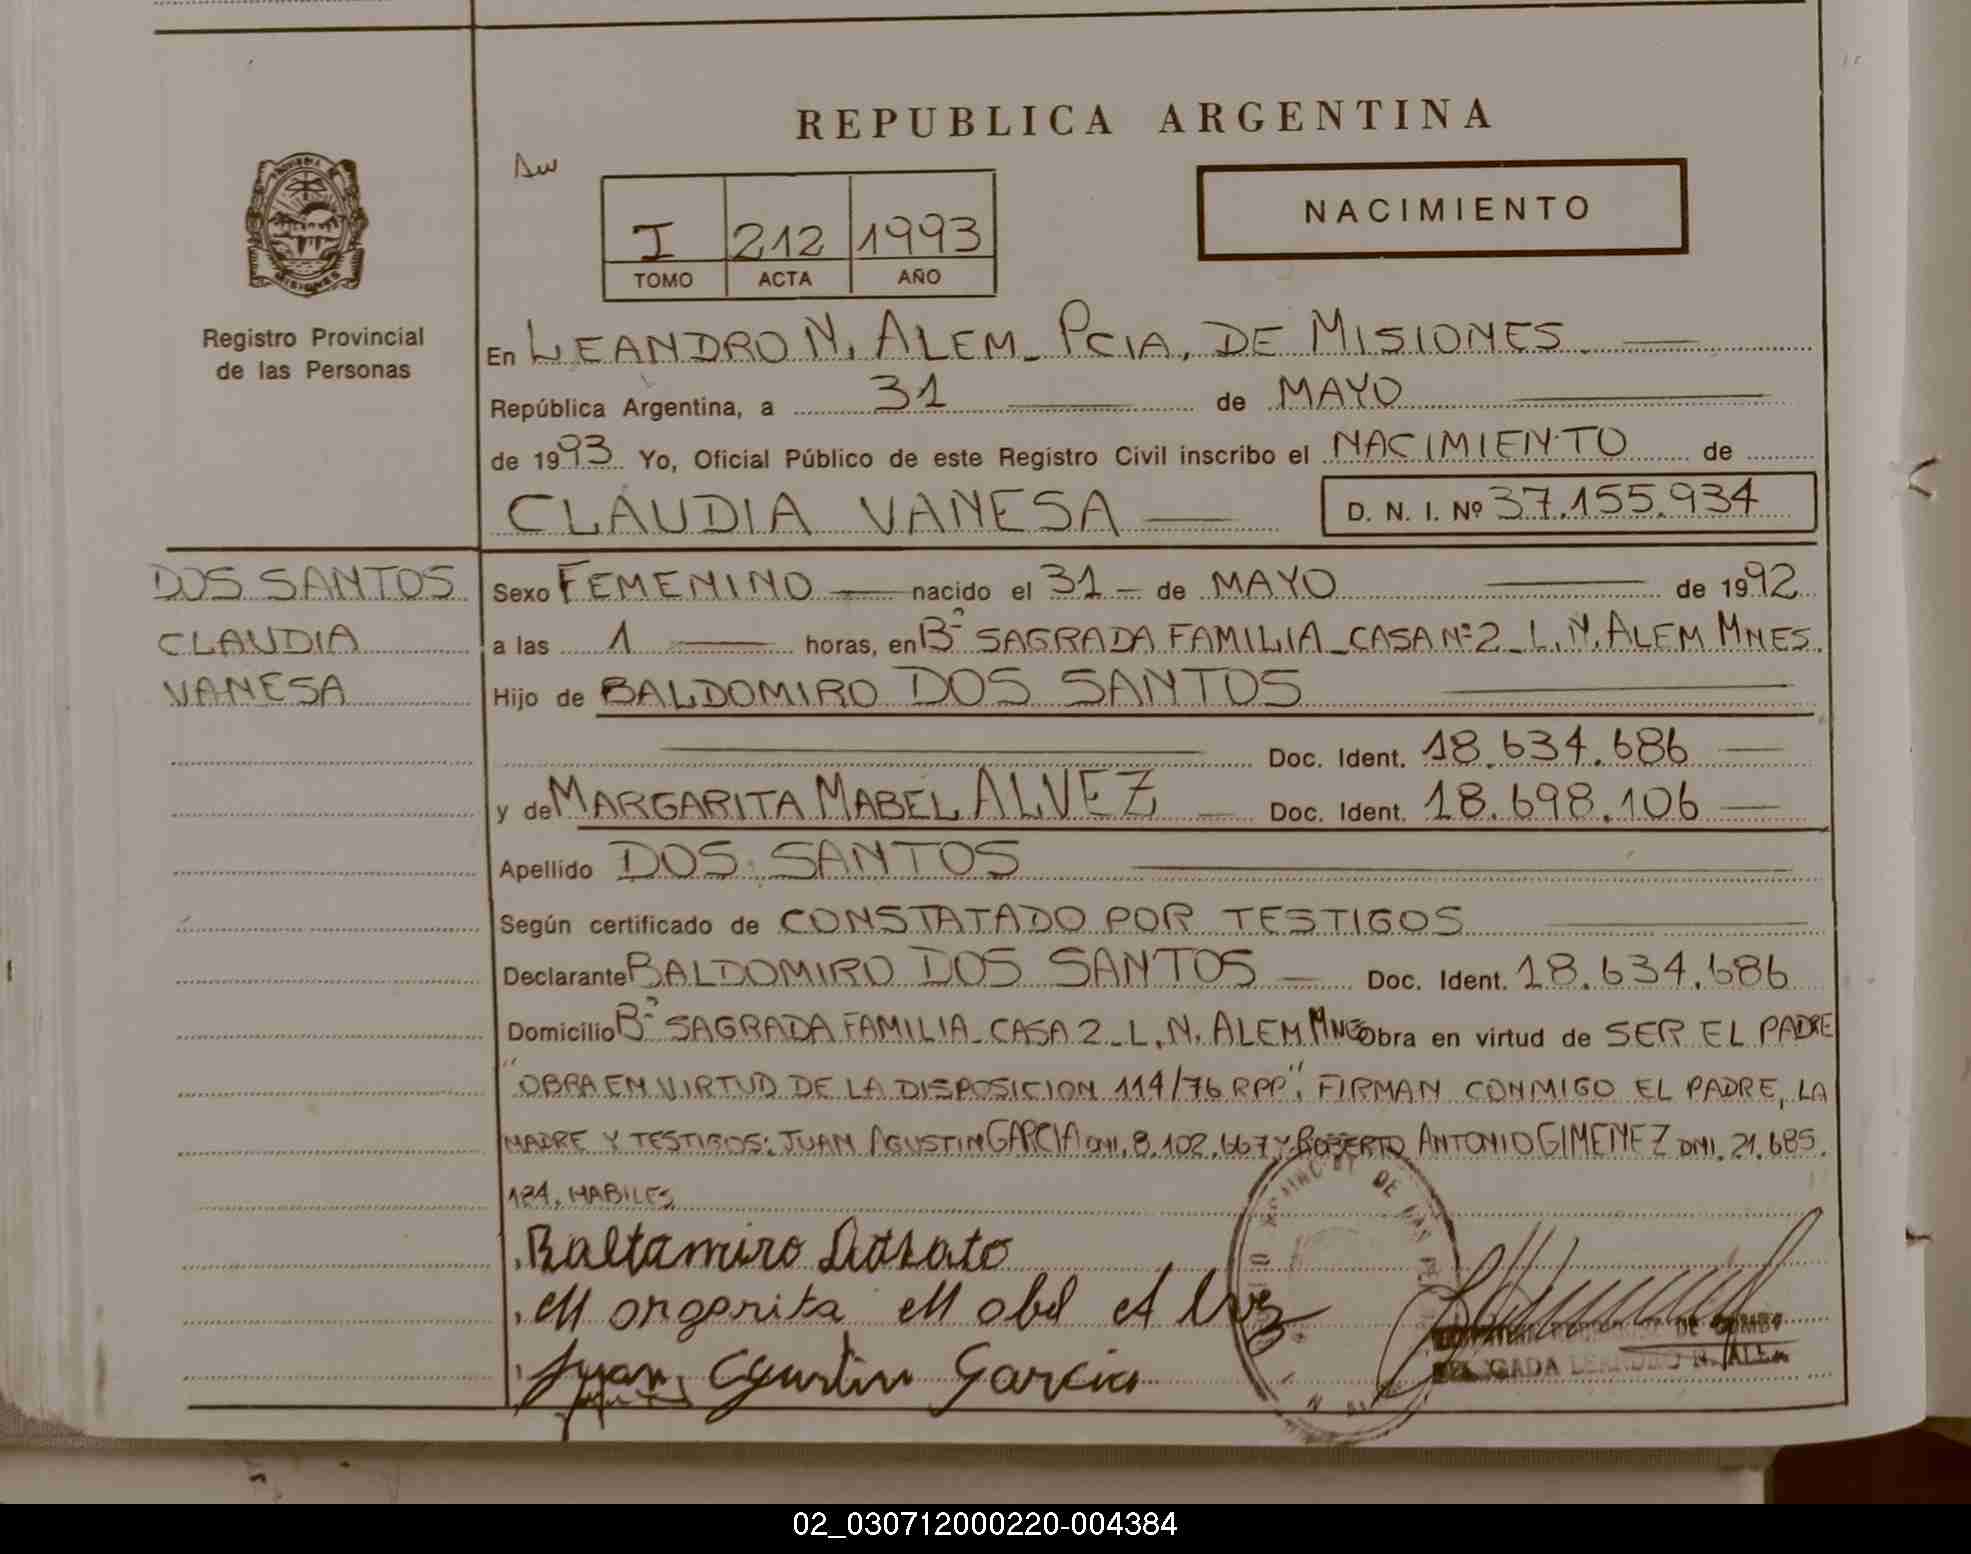 REPUBLICA ARGENTINA
I 212 1993
TOMO ACTA AÑO
NACIMIENTO
MISIONES
Registro Provincial
de las Personas
En LEANDRO N. ALEM_ PCIA. DE MISIONES.
República Argentina, a 31 de MAYO
de 1993 Yo, Oficial Público de este Registro Civil inscribo el NACIMIENTO de
CLAUDIA VANESA D. N. I. Nº 37.155.934
DOS SANTOS
CLAUDIA
VANESA
Sexo FEMENINO nacido el 31 - de MAYO de 1992
a las 1 horas, en Bº SAGRADA FAMILIA_CASA Nº 2_L.N. ALEM MNES.
Hijo de BALDOMIRO DOS SANTOS
Doc. Ident. 18.634.686
y de MARGARITA MABEL ALVEZ Doc. Ident. 18.698.106
Apellido DOS SANTOS
Según certificado de CONSTATADO POR TESTIGOS
Declarante BALDOMIRO DOS SANTOS Doc. Ident. 18.634.686
Domicilio Bº SAGRADA FAMILIA_CASA 2_L.N. ALEM MNES Obra en virtud de SER EL PADRE
"OBRA EN VIRTUD DE LA DISPOSICION 114/76 RPP". FIRMAN CONMIGO EL PADRE, LA
MADRE Y TESTIGOS: JUAN AGUSTIN GARCIA DNI. 8.102.667 Y ROBERTO ANTONIO GIMENEZ DNI. 21.685.
124, HABILES
Baltamiro Dosato
Margarita Mabel Alvez
Juan Agustin Garcia
DE
LEANDRO N. ALEM
02_030712000220-004384